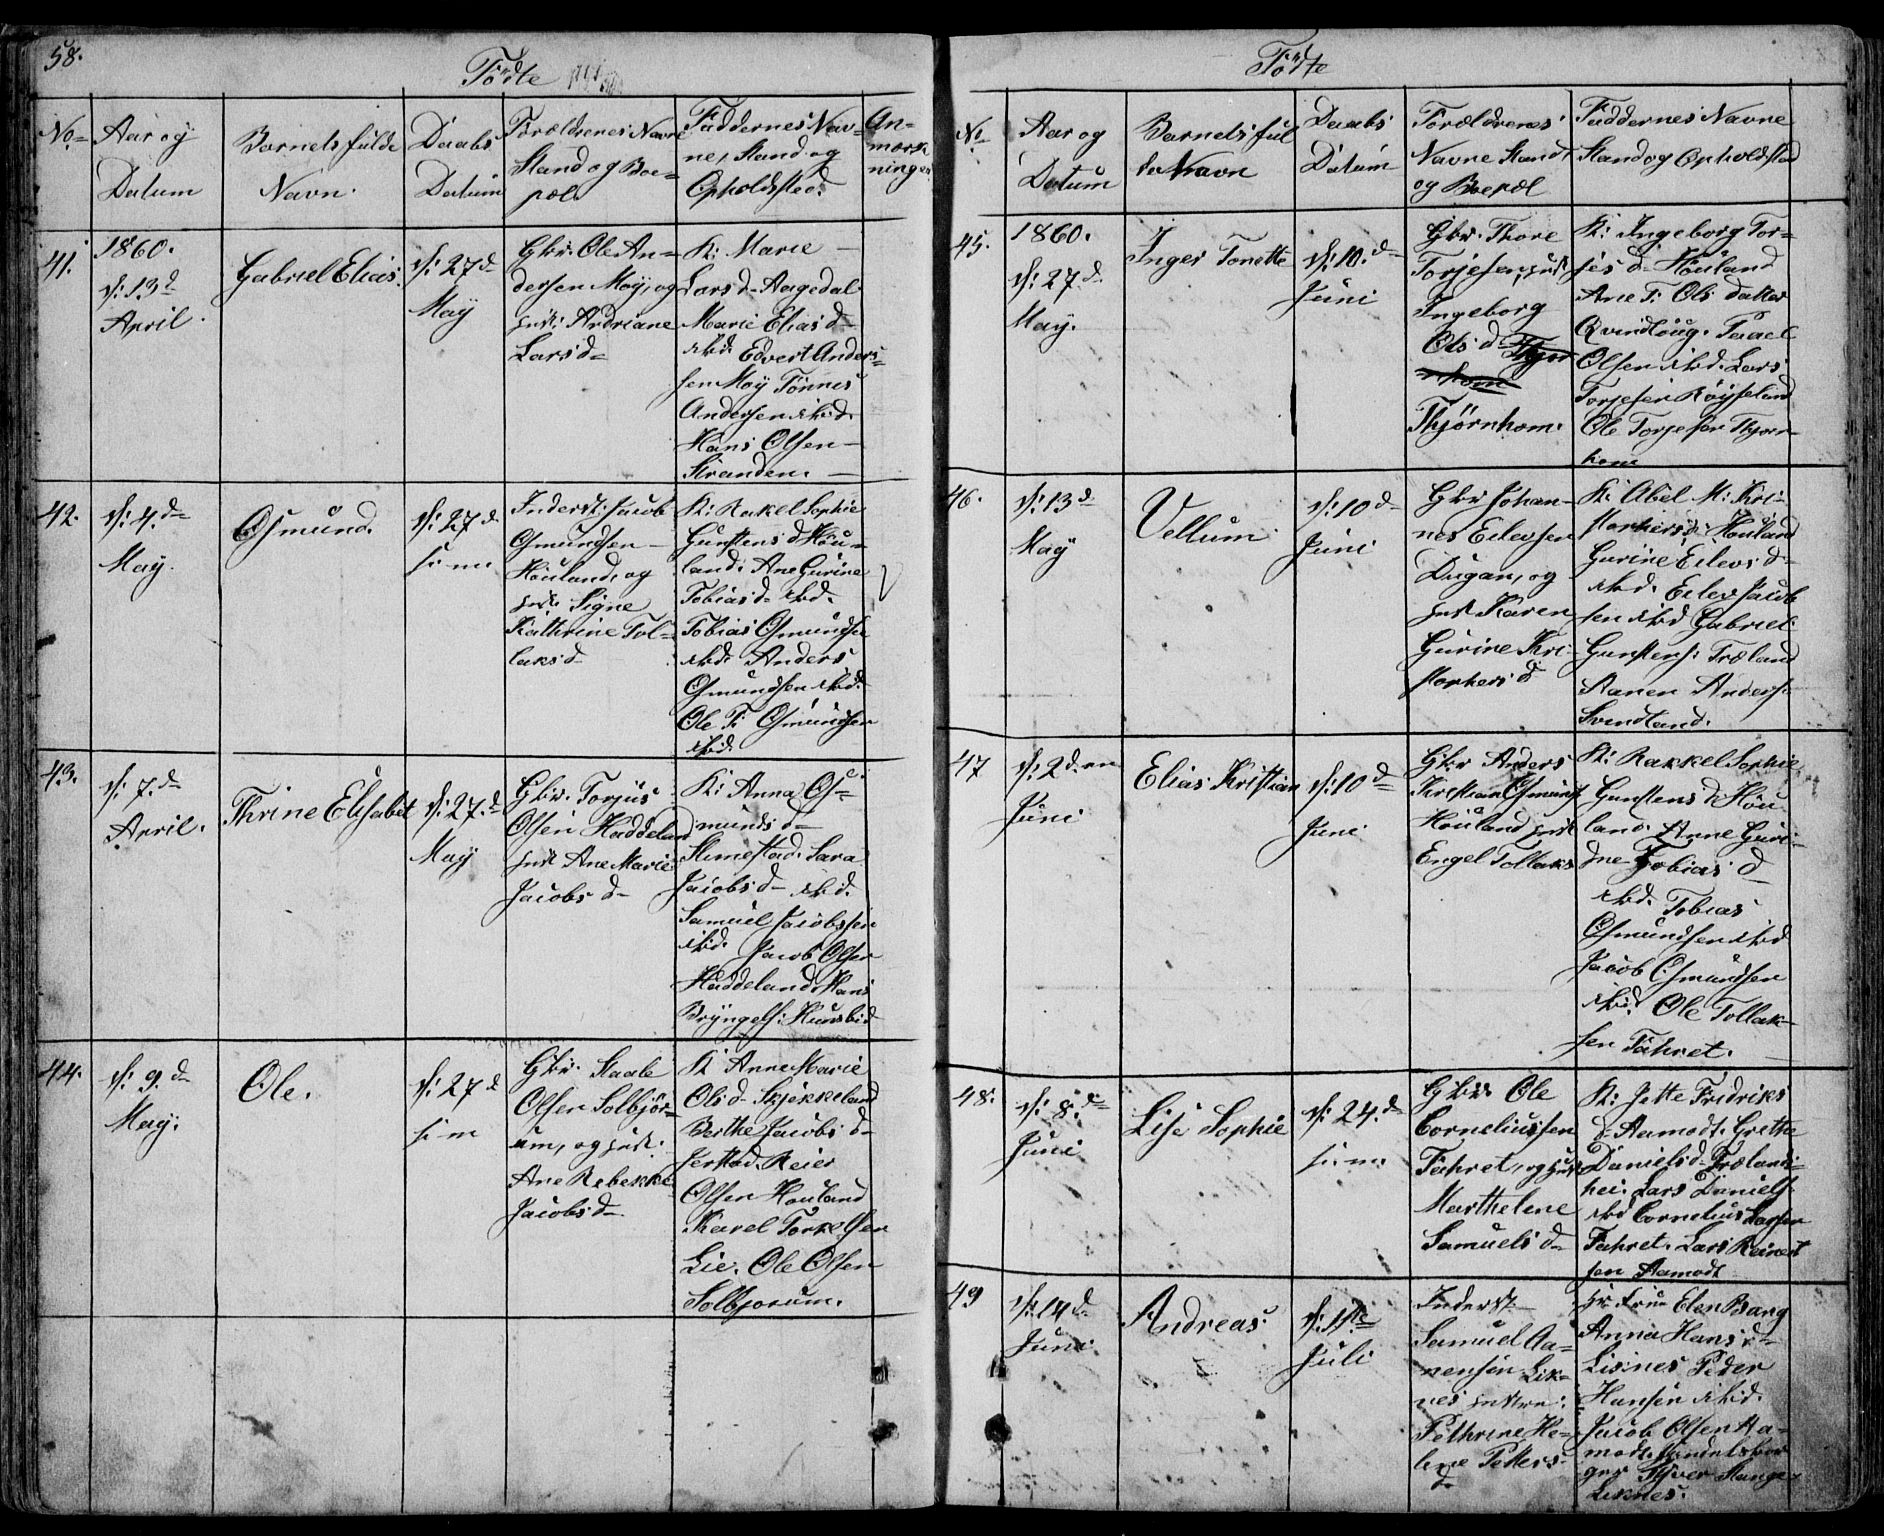 58.
Födte
No
Aar og
Datum
Barnets fulde
Navn.
Daabs
Datum
Forældrenes Navne
Stand og Boe-
pæl
Faddernes Nav-
ne, Stand og
Opholdsted.
An-
mærk
ninger
41.
1860.
d: 13d
April.
Gabriel Elias.
d: 27d
May
Gbr. Ole An-
dersen Møÿ, og
Andriane
Larsd-
K: Marie
Larsd- Aagedal
Marie Eliasd-
ibd. Edvert Anders-
sen Moÿ Tönnes
Andersen ibid.
Hans Olsen
Stranden.
42.
d: 4.d
May.
Osmund.
d: 27d
s: m
Inderst: Jacob
Osmundsen
Höuland, og
Signe
Kathrine Tol-
laksd-
K: Rakel Sophie
Gunstensd Höu-
land. Ane Gurine
Tobiasd- ibd.
Tobias Osmundse
ibd. Anders
Osmundsen ibd.
Ole T: Osmundsen
ibid.
43.
d: 7.d
April.
Thrine Elisabet
d: 27.d
May
Gbr. Torjus
Olsen Haddeland
Ane Marie
Jacobsd-
K: Anna Os-
mundsd-
Slimestad. Sara
Jacobsd- ibd.
Samuel Jacobssen
ibid. Jacob Olsen
Haddeland. Hans
Brÿngels: Hunsbed
44.
d: 9.d
May.
Ole.
d: 27d
s: m
Gbr. Staale
Olsen Solbjör-
um, og
Ane Rebekke
Jacobsd-
K: Anne Marie
Olsd- Skjekkeland
Berthe Jacobsd-
Jerstad. Reier
Olsen Houland
Karel Torkelsen
Lie. Ole Olsen
Solbjorum.
Födte
No
Aar og
Datum
Barnets ful
de Navn
Daabs
Datum
Forældrenes
Navne Stand
og Boepæl
Faddernes Navne
Stand og Opholdsted
45.
1860.
d: 27d
May.
Inger Tonette
d: 10.d
Juni
Gbr. Thore
Torjesen,
Ingeborg
Olsd-
Thjørnhom.
K: Ingeborg Tor-
jesd- Höuland
Ane T: Ols datter
Qvindlöug. Paael
Olsen ibd. Lars
Torjesen Röÿseland
Ole Torjesen Thjorn-
hom
46.
d: 13d
May
Vellum
d: 10d
Juni
Gbr Johan-
nes Eilevsen
Dugan, og
Karen
Gurine Kri-
stophersd
K: Abel M: Kri-
stophersd. Houland
Gurine Eilevsd-
ibd. Eilev Jacob
sen ibd Gabriel
Gunstens: Træland
Svindland.
47
d: 2den
Juni
Elias Kristian
d: 10d
Juni
Gbr Anders
Kristian Osmunds
Höuland
Engel Tollaks
K: Rakkel Sophie
Gunstensd: Höu
land. Anne Guri-
ne Tobiasd
ibd. Tobias
Osmundsen ibd
Jacob Osmundsen
ibid Ole Tollak-
sen Fahret.
48.
d: 8.d
Juni
Lise Sophie
d: 24.d
s: m
Gbr. Ole
Corneliussen
Fahret, og
Marthelene
Samuelsd-
K: Jette Fridriks
d- Aamodt. Grethe
Danielsd- Trælands-
hei. Lars Daniels
ibd Cornelius Larsen
Fahret. Lars Reinert
sen Aamodt
49
d: 14d
Juni.
Andreas.
Juli
Inderst
Samuel Aa-
nensen Lek-
nes
Pethrine He-
lene Petters
d-
Elen Bang
Anna Hansd-
Lienes Peder
Hansen ibid.
Jacob Olsen Aa-
modt.
Leknes.